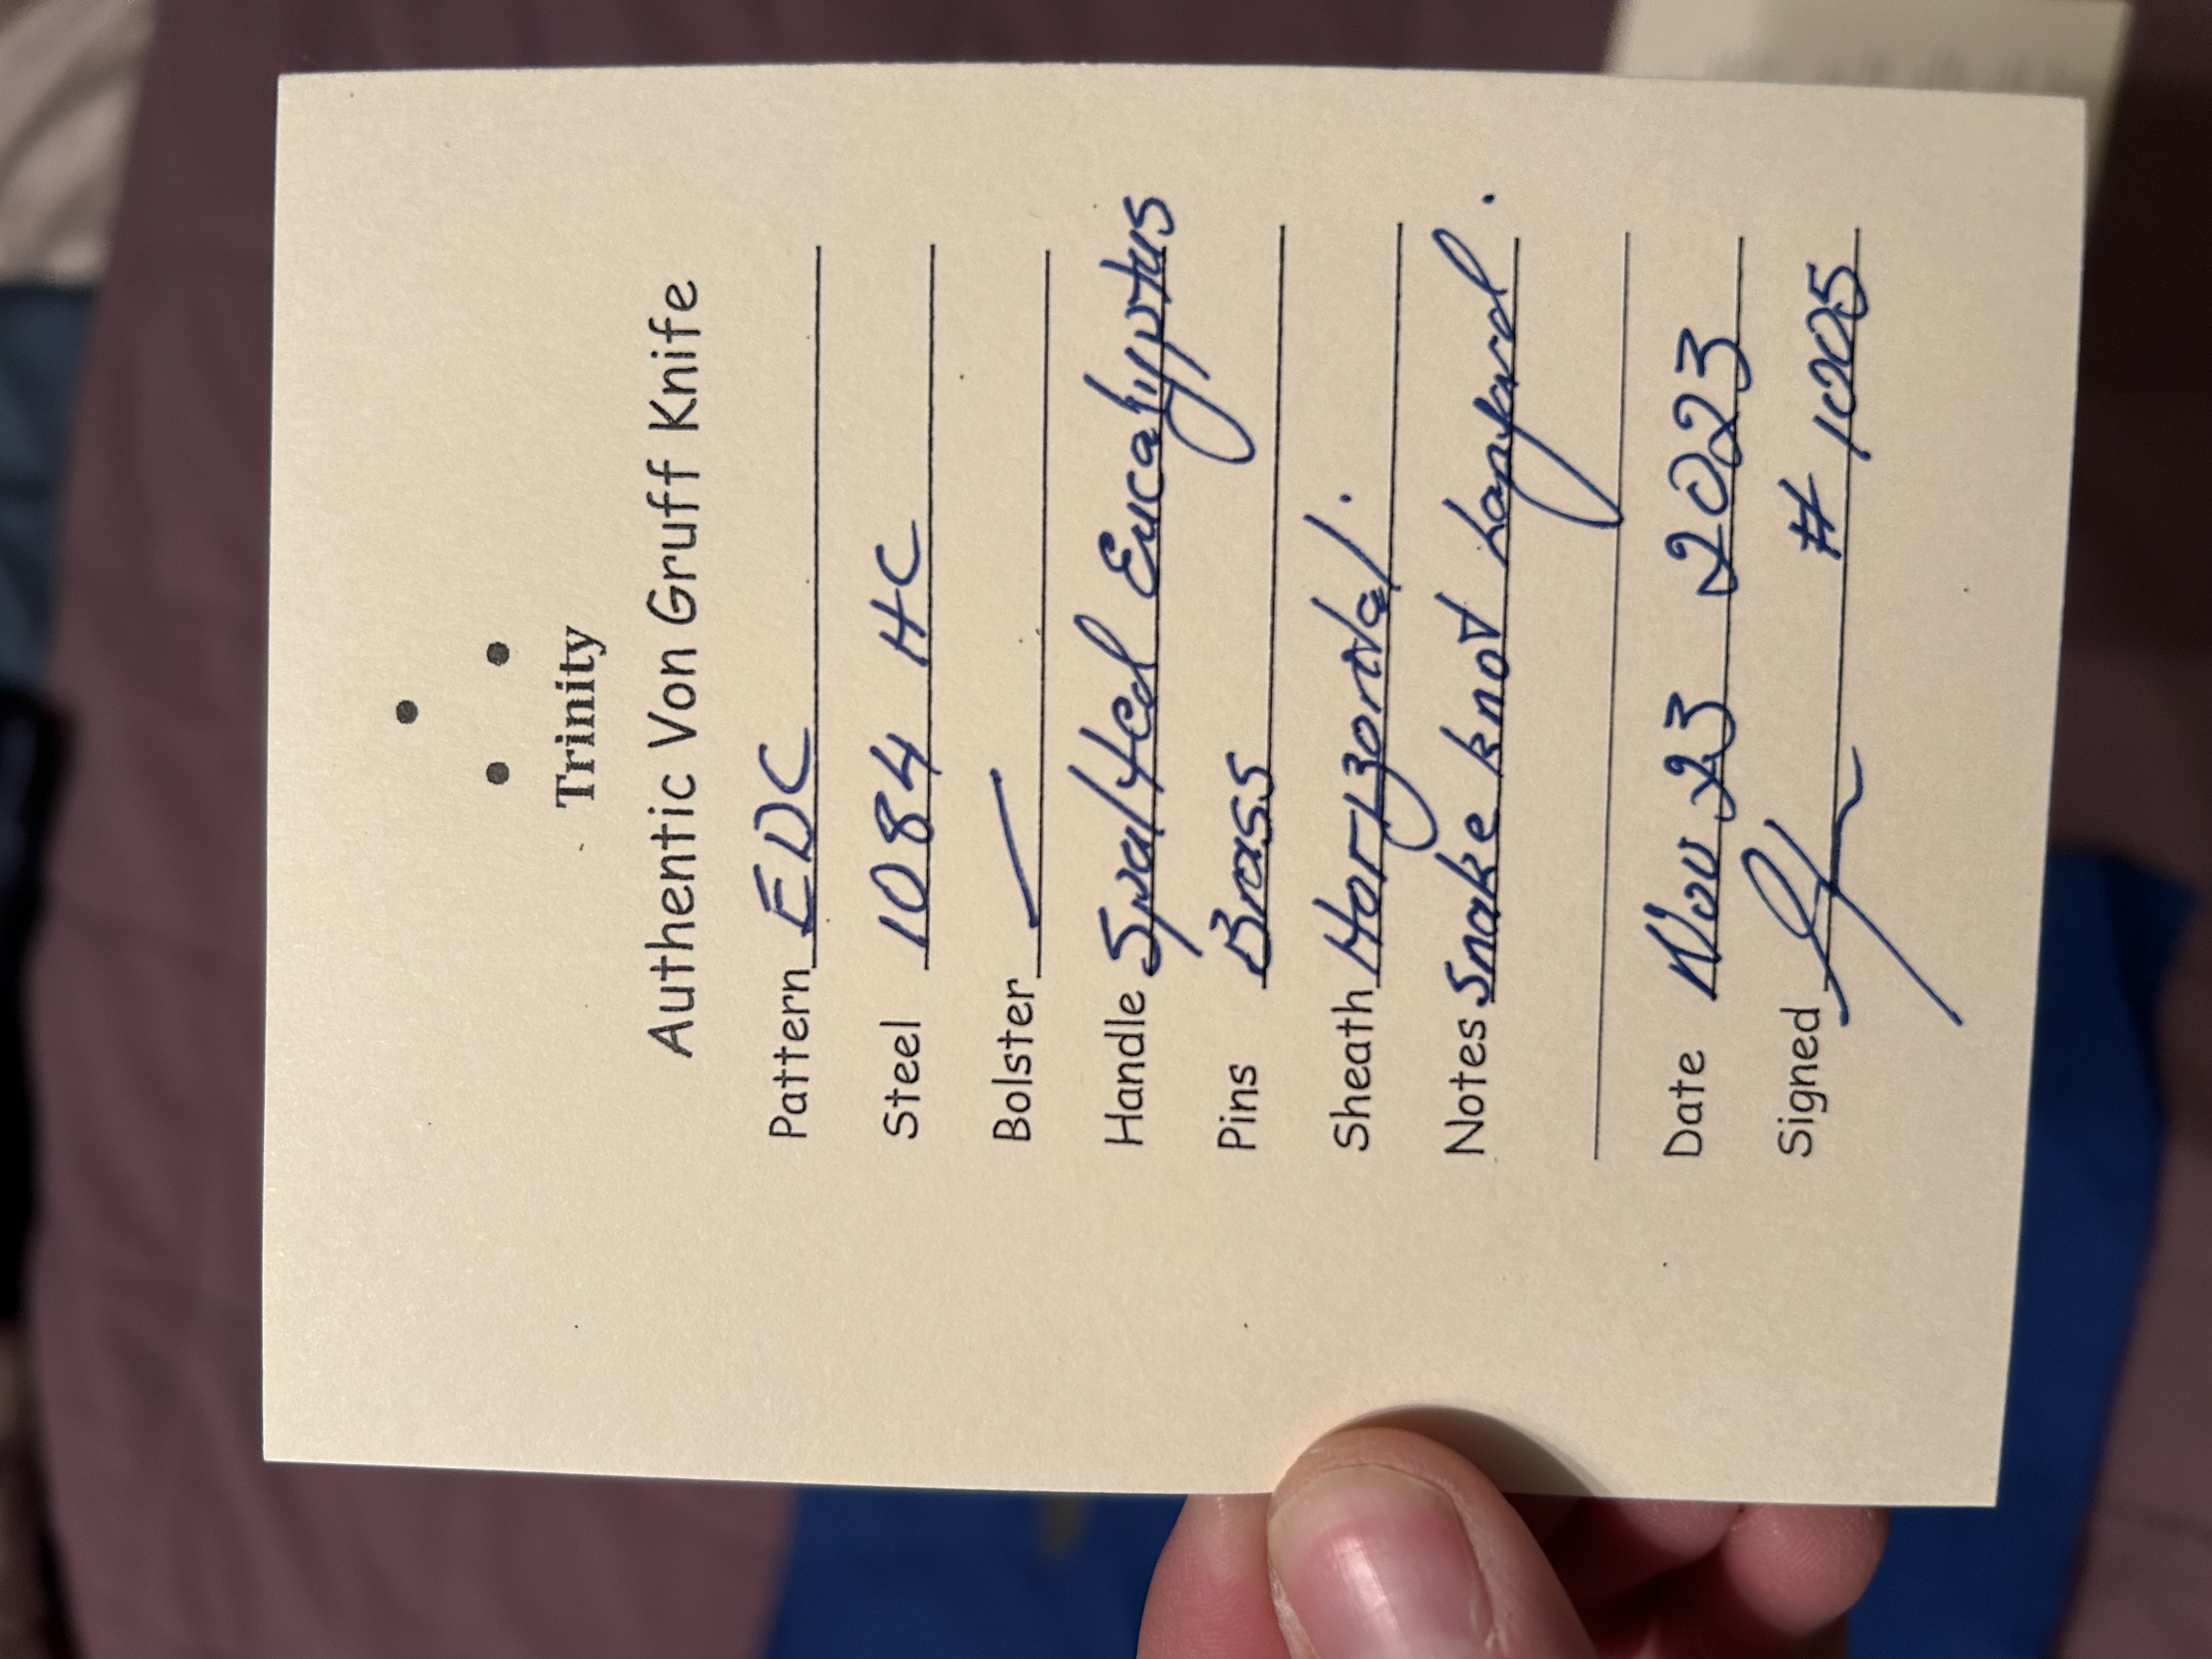 Trinity
Authentic Von Gruff Knife
Pattern EDC
Steel 1084 HC
Bolster
Handle Spalted Eucalyptus
Pins Brass
Sheath Horizontal.
Notes Snake knot Lanyard.
Date Nov 23 2023
Signed # 1005